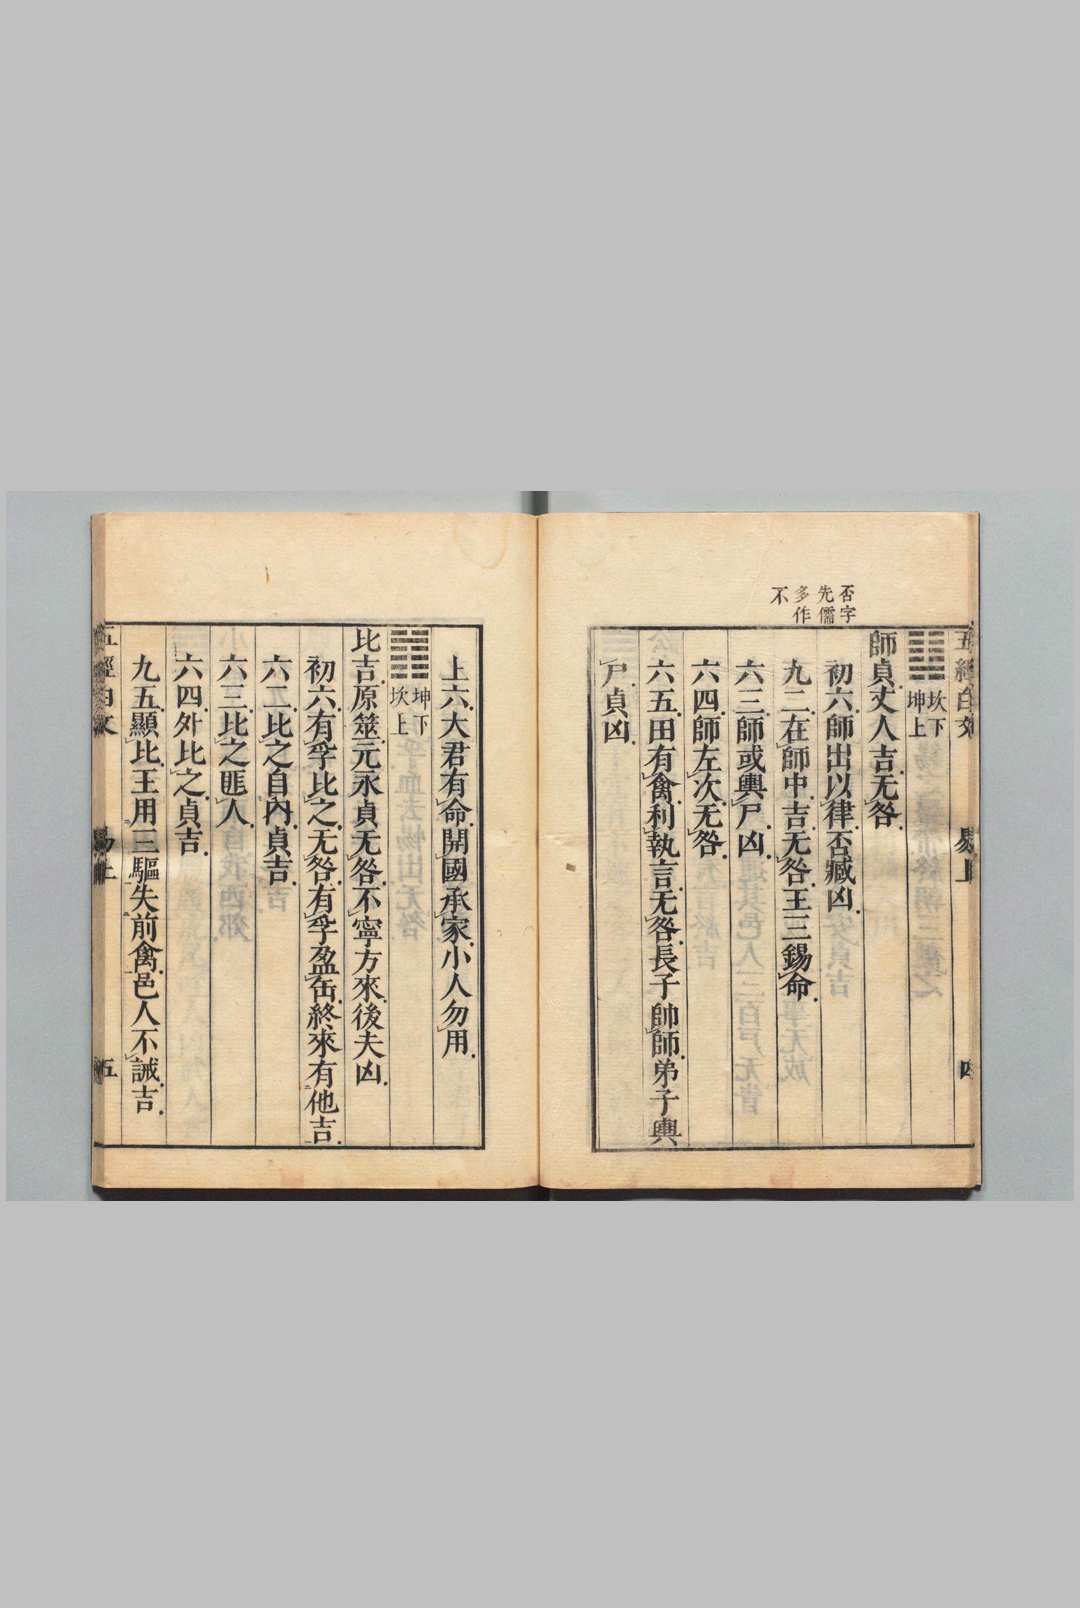 否字
先儒
多作
不
五經白文 易上 四
坎下
坤上
師貞丈人吉无咎
初六師出以律否臧凶
九二在師中吉无咎王三錫命
六三師或輿尸凶
六四師左次无咎
六五田有禽利執言无咎長子帥師弟子輿
尸貞凶
上六大君有命開國承家小人勿用
坤下
坎上
比吉原筮元永貞无咎不寧方來後夫凶
初六有孚比之无咎有孚盈缶終來有他吉
六二比之自內貞吉
六三比之匪人
六四外比之貞吉
九五顯比王用三驅失前禽邑人不誡吉
五經白文 易上 五